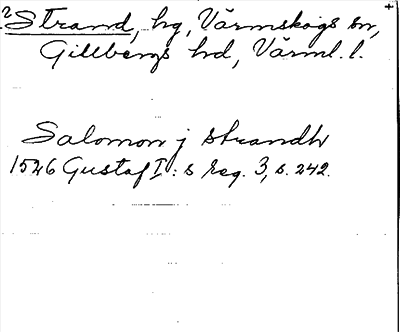 2 Strand, hg, Värmskogs sn,
Gillbergs hd, Värml. l.
Salomon j strandh
1526 Gustaf I:s reg. 3, s. 242.